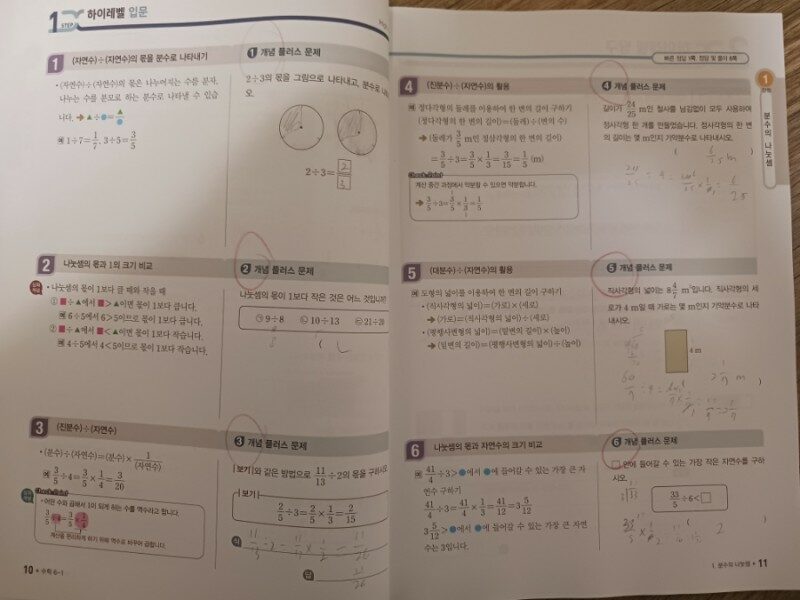 1 STEP 하이레벨 입문
1 (자연수)÷(자연수)의 몫을 분수로 나타내기
• (자연수)÷(자연수)의 몫은 나누어지는 수를 분자,
나누는 수를 분모로 하는 분수로 나타낼 수 있습
니다. ➔ ▲÷●=▲/●
예 1÷7=1/7, 3÷5=3/5
1 개념 플러스 문제
2÷3의 몫을 그림으로 나타내고, 분수로 나
오.
2÷3=2/3
2 나눗셈의 몫과 1의 크기 비교
• 나눗셈의 몫이 1보다 클 때와 작을 때
① ■÷▲에서 ■>▲이면 몫이 1보다 큽니다.
예 6÷5에서 6>5이므로 몫이 1보다 큽니다.
② ■÷▲에서 ■<▲이면 몫이 1보다 작습니다.
예 4÷5에서 4<5이므로 몫이 1보다 작습니다.
2 개념 플러스 문제
나눗셈의 몫이 1보다 작은 것은 어느 것입니까?
㉠ 9÷8 ㉡ 10÷13 ㉢ 21÷20
3 (진분수)÷(자연수)
• (분수)÷(자연수)=(분수)×1/(자연수)
예 3/5÷4=3/5×1/4=3/20
Check Point
• 어떤 수와 곱해서 1이 되게 하는 수를 역수라고 합니다.
계산을 편리하게 하기 위해 역수로 바꾸어 곱합니다.
3 개념 플러스 문제
보기 와 같은 방법으로 11/13÷2의 몫을 구하시오.
보기
2/5÷3=2/5×1/3=2/15
식 11/13÷2=11/13×1/2=11/26
답 11/26
10 • 수학 6-1
빠른 정답 1쪽, 정답 및 풀이 8쪽
1 단원
분수의 나눗셈
4 (진분수)÷(자연수)의 활용
예 정다각형의 둘레를 이용하여 한 변의 길이 구하기
(정다각형의 한 변의 길이)=(둘레)÷(변의 수)
➔ (둘레가 3/5 m인 정삼각형의 한 변의 길이)
=3/5÷3=3/5×1/3=3/15=1/5 (m)
Check Point
계산 중간 과정에서 약분할 수 있으면 약분합니다.
➔ 3/5÷3=3/5×1/3=1/5
4 개념 플러스 문제
길이가 24/25 m인 철사를 남김없이 모두 사용하여
정사각형 한 개를 만들었습니다. 정사각형의 한 변
의 길이는 몇 m인지 기약분수로 나타내시오.
5 (대분수)÷(자연수)의 활용
예 도형의 넓이를 이용하여 한 변의 길이 구하기
• (직사각형의 넓이)=(가로)×(세로)
➔ (가로)=(직사각형의 넓이)÷(세로)
• (평행사변형의 넓이)=(밑변의 길이)×(높이)
➔ (밑변의 길이)=(평행사변형의 넓이)÷(높이)
5 개념 플러스 문제
직사각형의 넓이는 8 4/7 m²입니다. 직사각형의 세
로가 4 m일 때 가로는 몇 m인지 기약분수로 나타
내시오.
4 m
6 나눗셈의 몫과 자연수의 크기 비교
예 41/4÷3>●에서 ●에 들어갈 수 있는 가장 큰 자
연수 구하기
41/4÷3=41/4×1/3=41/12=3 5/12
3 5/12>●에서 ●에 들어갈 수 있는 가장 큰 자연
수는 3입니다.
6 개념 플러스 문제
□ 안에 들어갈 수 있는 가장 작은 자연수를 구하
시오.
33/5÷6<□
2
1. 분수의 나눗셈 • 11